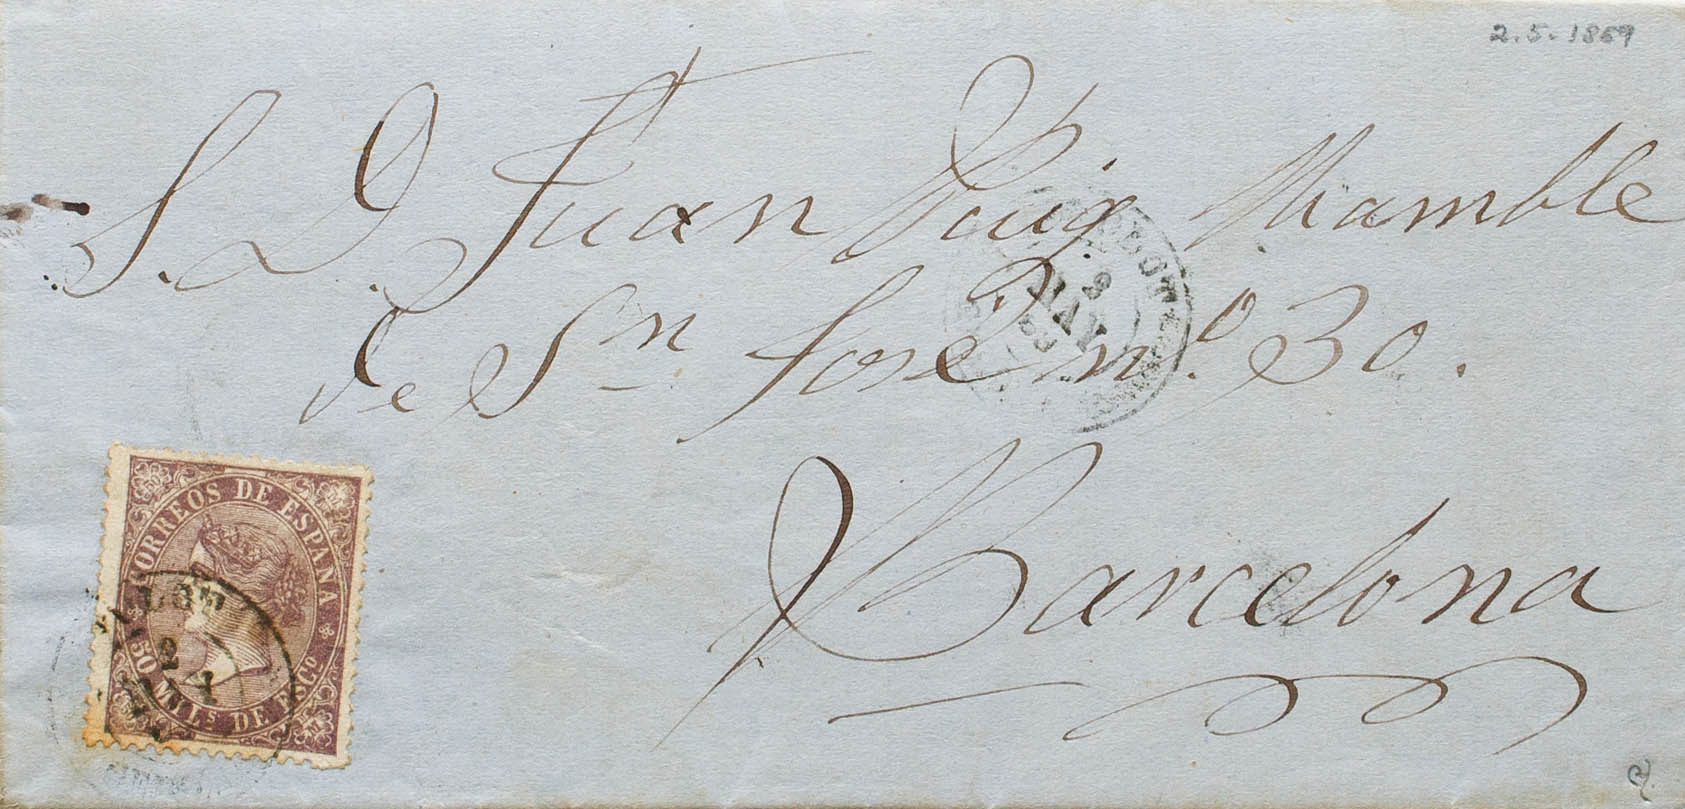 2.5.1869
S. D. Juan Puig Mamble
de Sn José nº 30.
Barcelona
CORREOS DE ESPAÑA
50 MILs DE ESCO
2
MAY